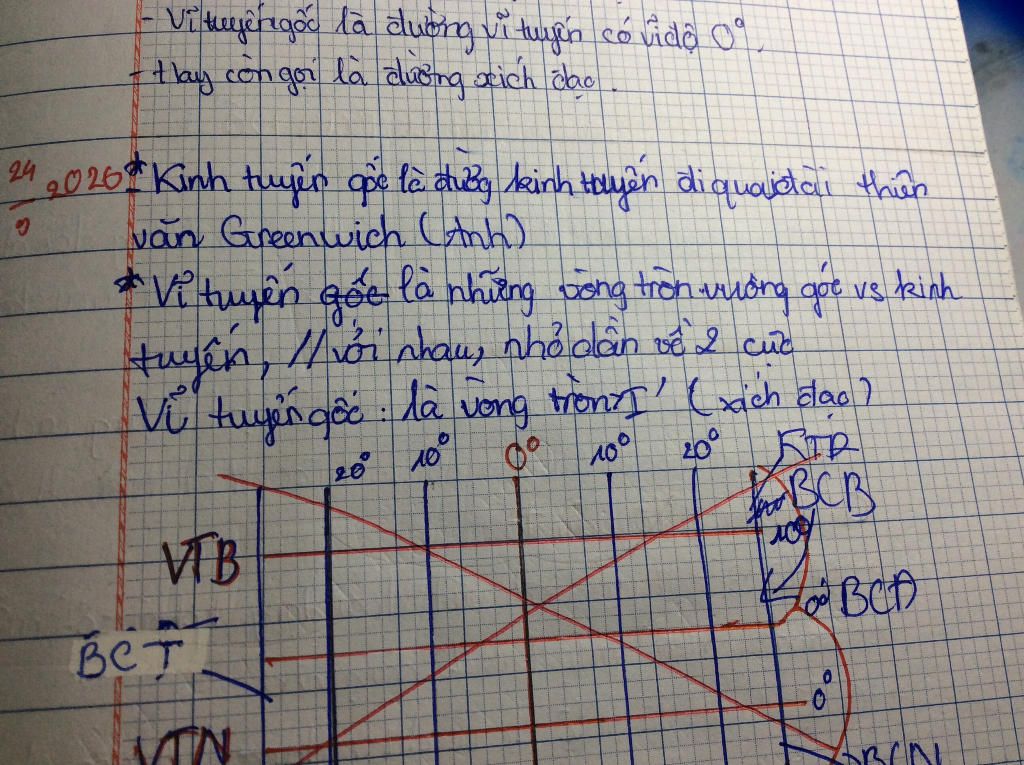 - Vĩ tuyến gốc là đường vĩ tuyến có vĩ độ 0°.
- Hay còn gọi là đường xích đạo.
24
9
2026
* Kinh tuyến gốc là đường kinh tuyến đi qua đài thiên
văn Greenwich (Anh)
* Vĩ tuyến gốc là những vòng tròn vuông góc vs kinh
tuyến, // với nhau, nhỏ dần về 2 cực
Vĩ tuyến gốc: là vòng tròn > I' (xích đạo)
20° 10° 0° 10° 20°
BCB
VTB
10°
0° BCĐ
BCT
0°
VTN
BCN